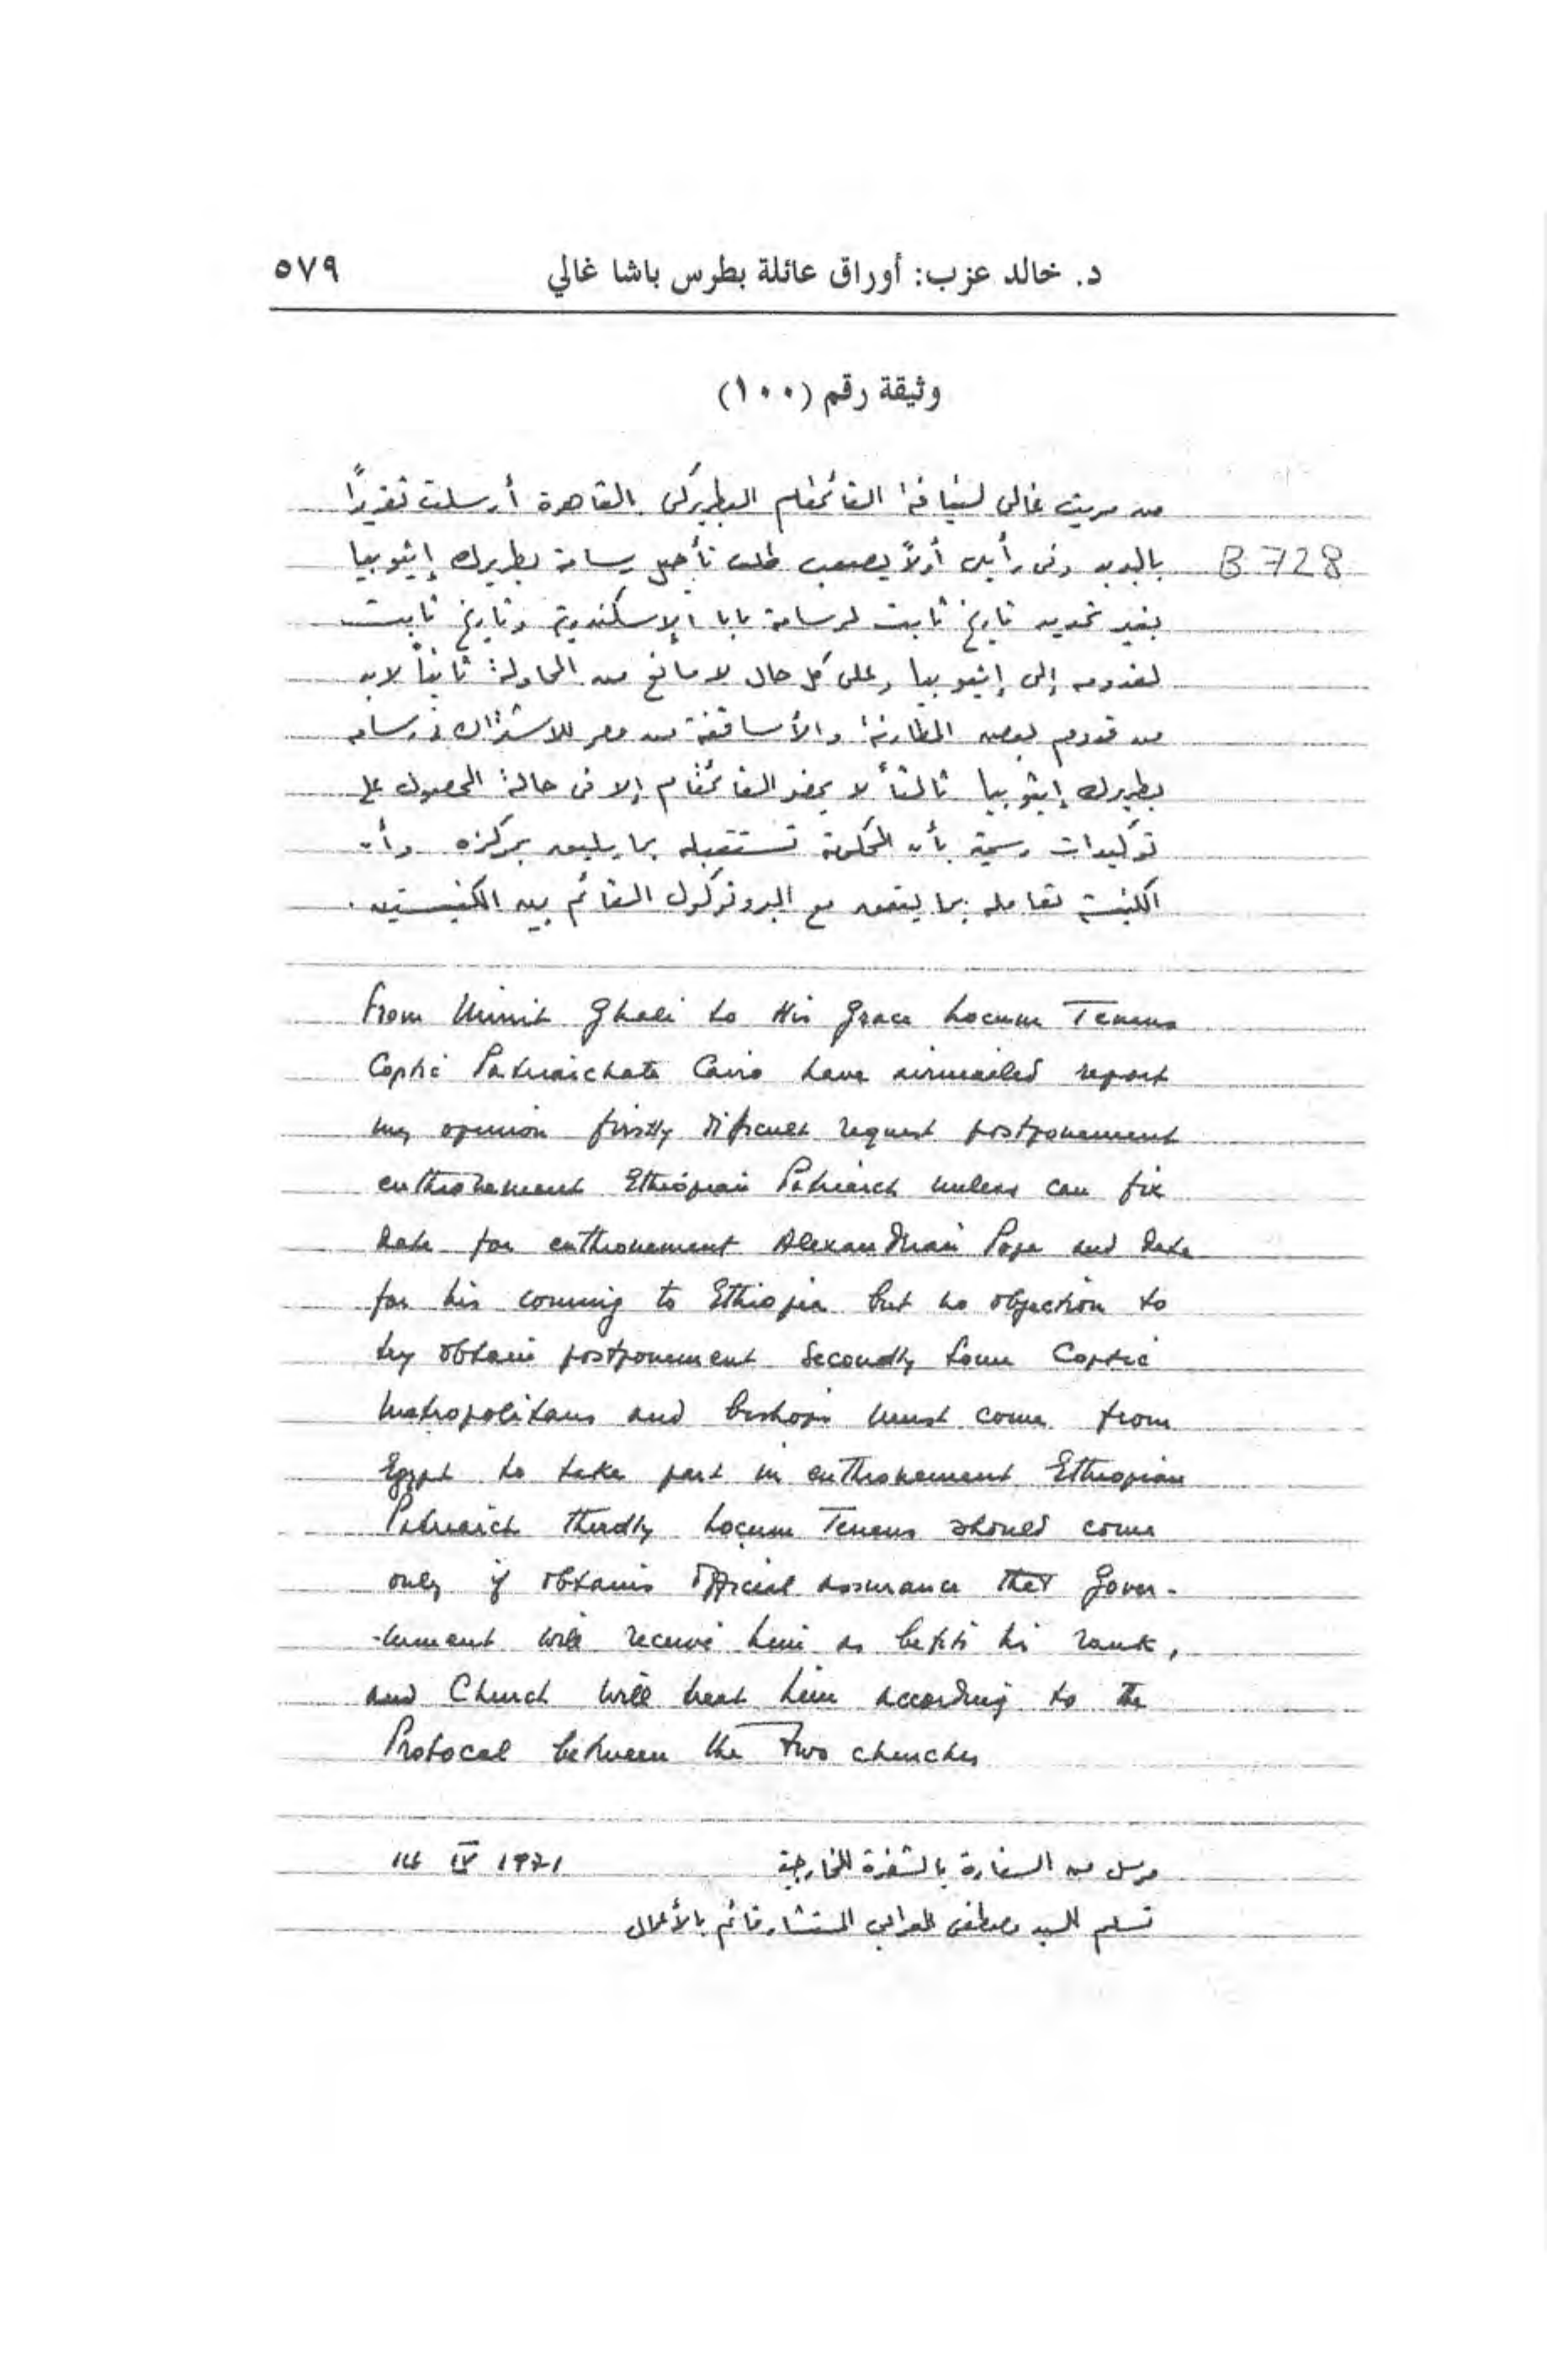 د. خالد عزب: أوراق عائلة بطرس باشا غالي
٥٧٩
وثيقة رقم (١٠٠)
من مريت غالى لنيافة القائمقام البطريركى القاهرة أرسلت تقريرًا
بالبريد وفى رأيى أولاً يصعب طلب تأجيل رسامة بطريرك إثيوبيا
B 728
بغير تحديد تاريخ ثابت لرسامة بابا الإسكندرية وتاريخ ثابت
لقدومه إلى إثيوبيا وعلى كل حال لا مانع من المحاولة: ثانياً لابد
من قدوم بعض المطارنة والأساقفة من مصر للاشتراك فى رسامة
بطريرك إثيوبيا ثالثاً لا يحضر القائمقام إلا فى حالة الحصول على
توكيدات رسمية بأن الحكومة تستقبله بما يليق بمركزه وأن
الكنيسة تعامله بما يتفق مع البروتوكول القائم بين الكنيستين .
From Mirrit Ghali to His Grace Locum Tenens
Coptic Patriarchate Cairo have airmailed report
my opinion firstly difficult request postponement
enthronement Ethiopian Patriarch unless can fix
date for enthronement Alexandrian Pope and date
for his coming to Ethiopia but no objection to
try obtain postponement secondly some Coptic
metropolitans and bishops must come from
Egypt to take part in enthronement Ethiopian
Patriarch thirdly Locum Tenens should come
only if obtains official assurance that Gover-
-nment will receive him as befits his rank,
and Church will treat him according to the
Protocol between the two churches
مرسل من السفارة بالشفرة للخارجية
IV 1971
تسلم السيد مصطفى المستشار قائم بالأعمال